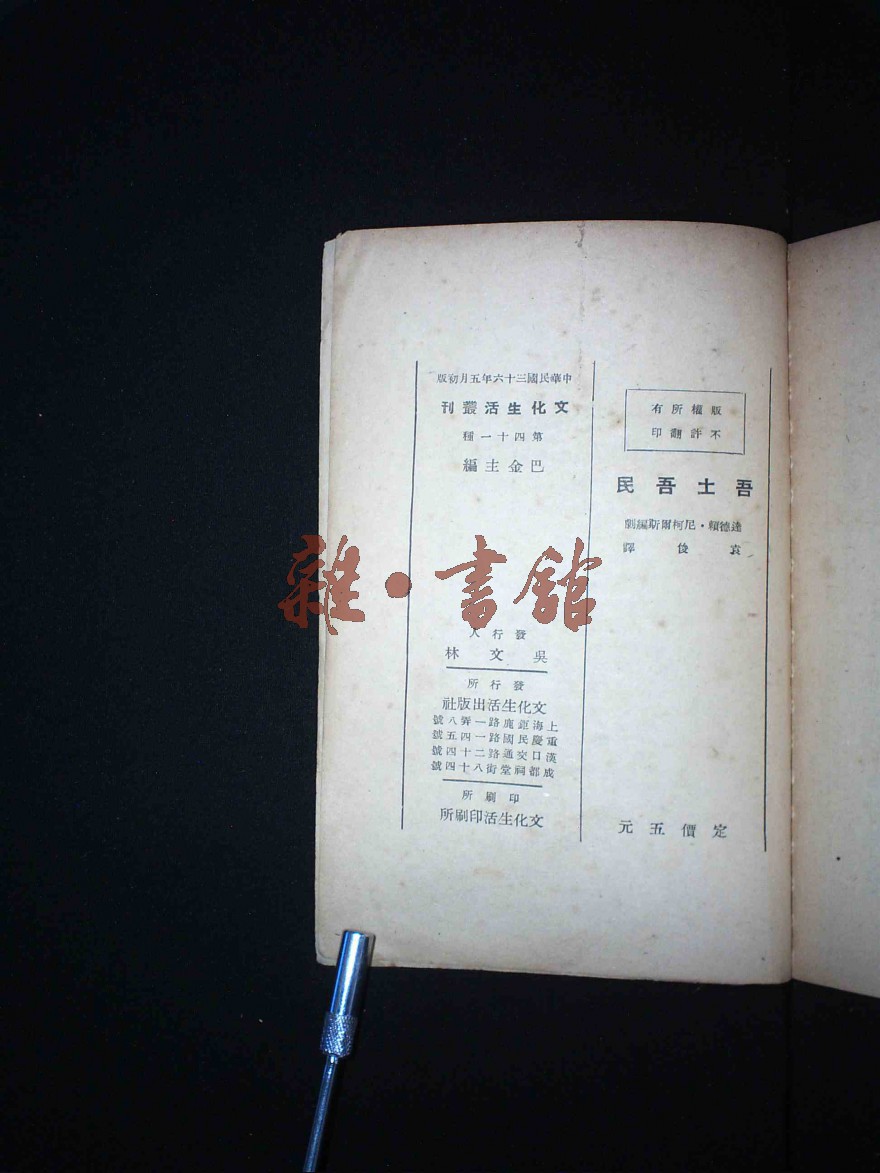 版權所有
不許翻印
吾土吾民
達德賴·尼柯爾斯編劇
袁俊譯
定價五元
中華民國三十六年五月初版
文化生活叢刊
第四十一種
巴金主編
發行人
吳文林
發行所
文化生活出版社
上海鉅鹿路一弄八號
重慶民國路一四五號
漢口交通路二十四號
成都祠堂街八十四號
印刷所
文化生活印刷所
雜·書館